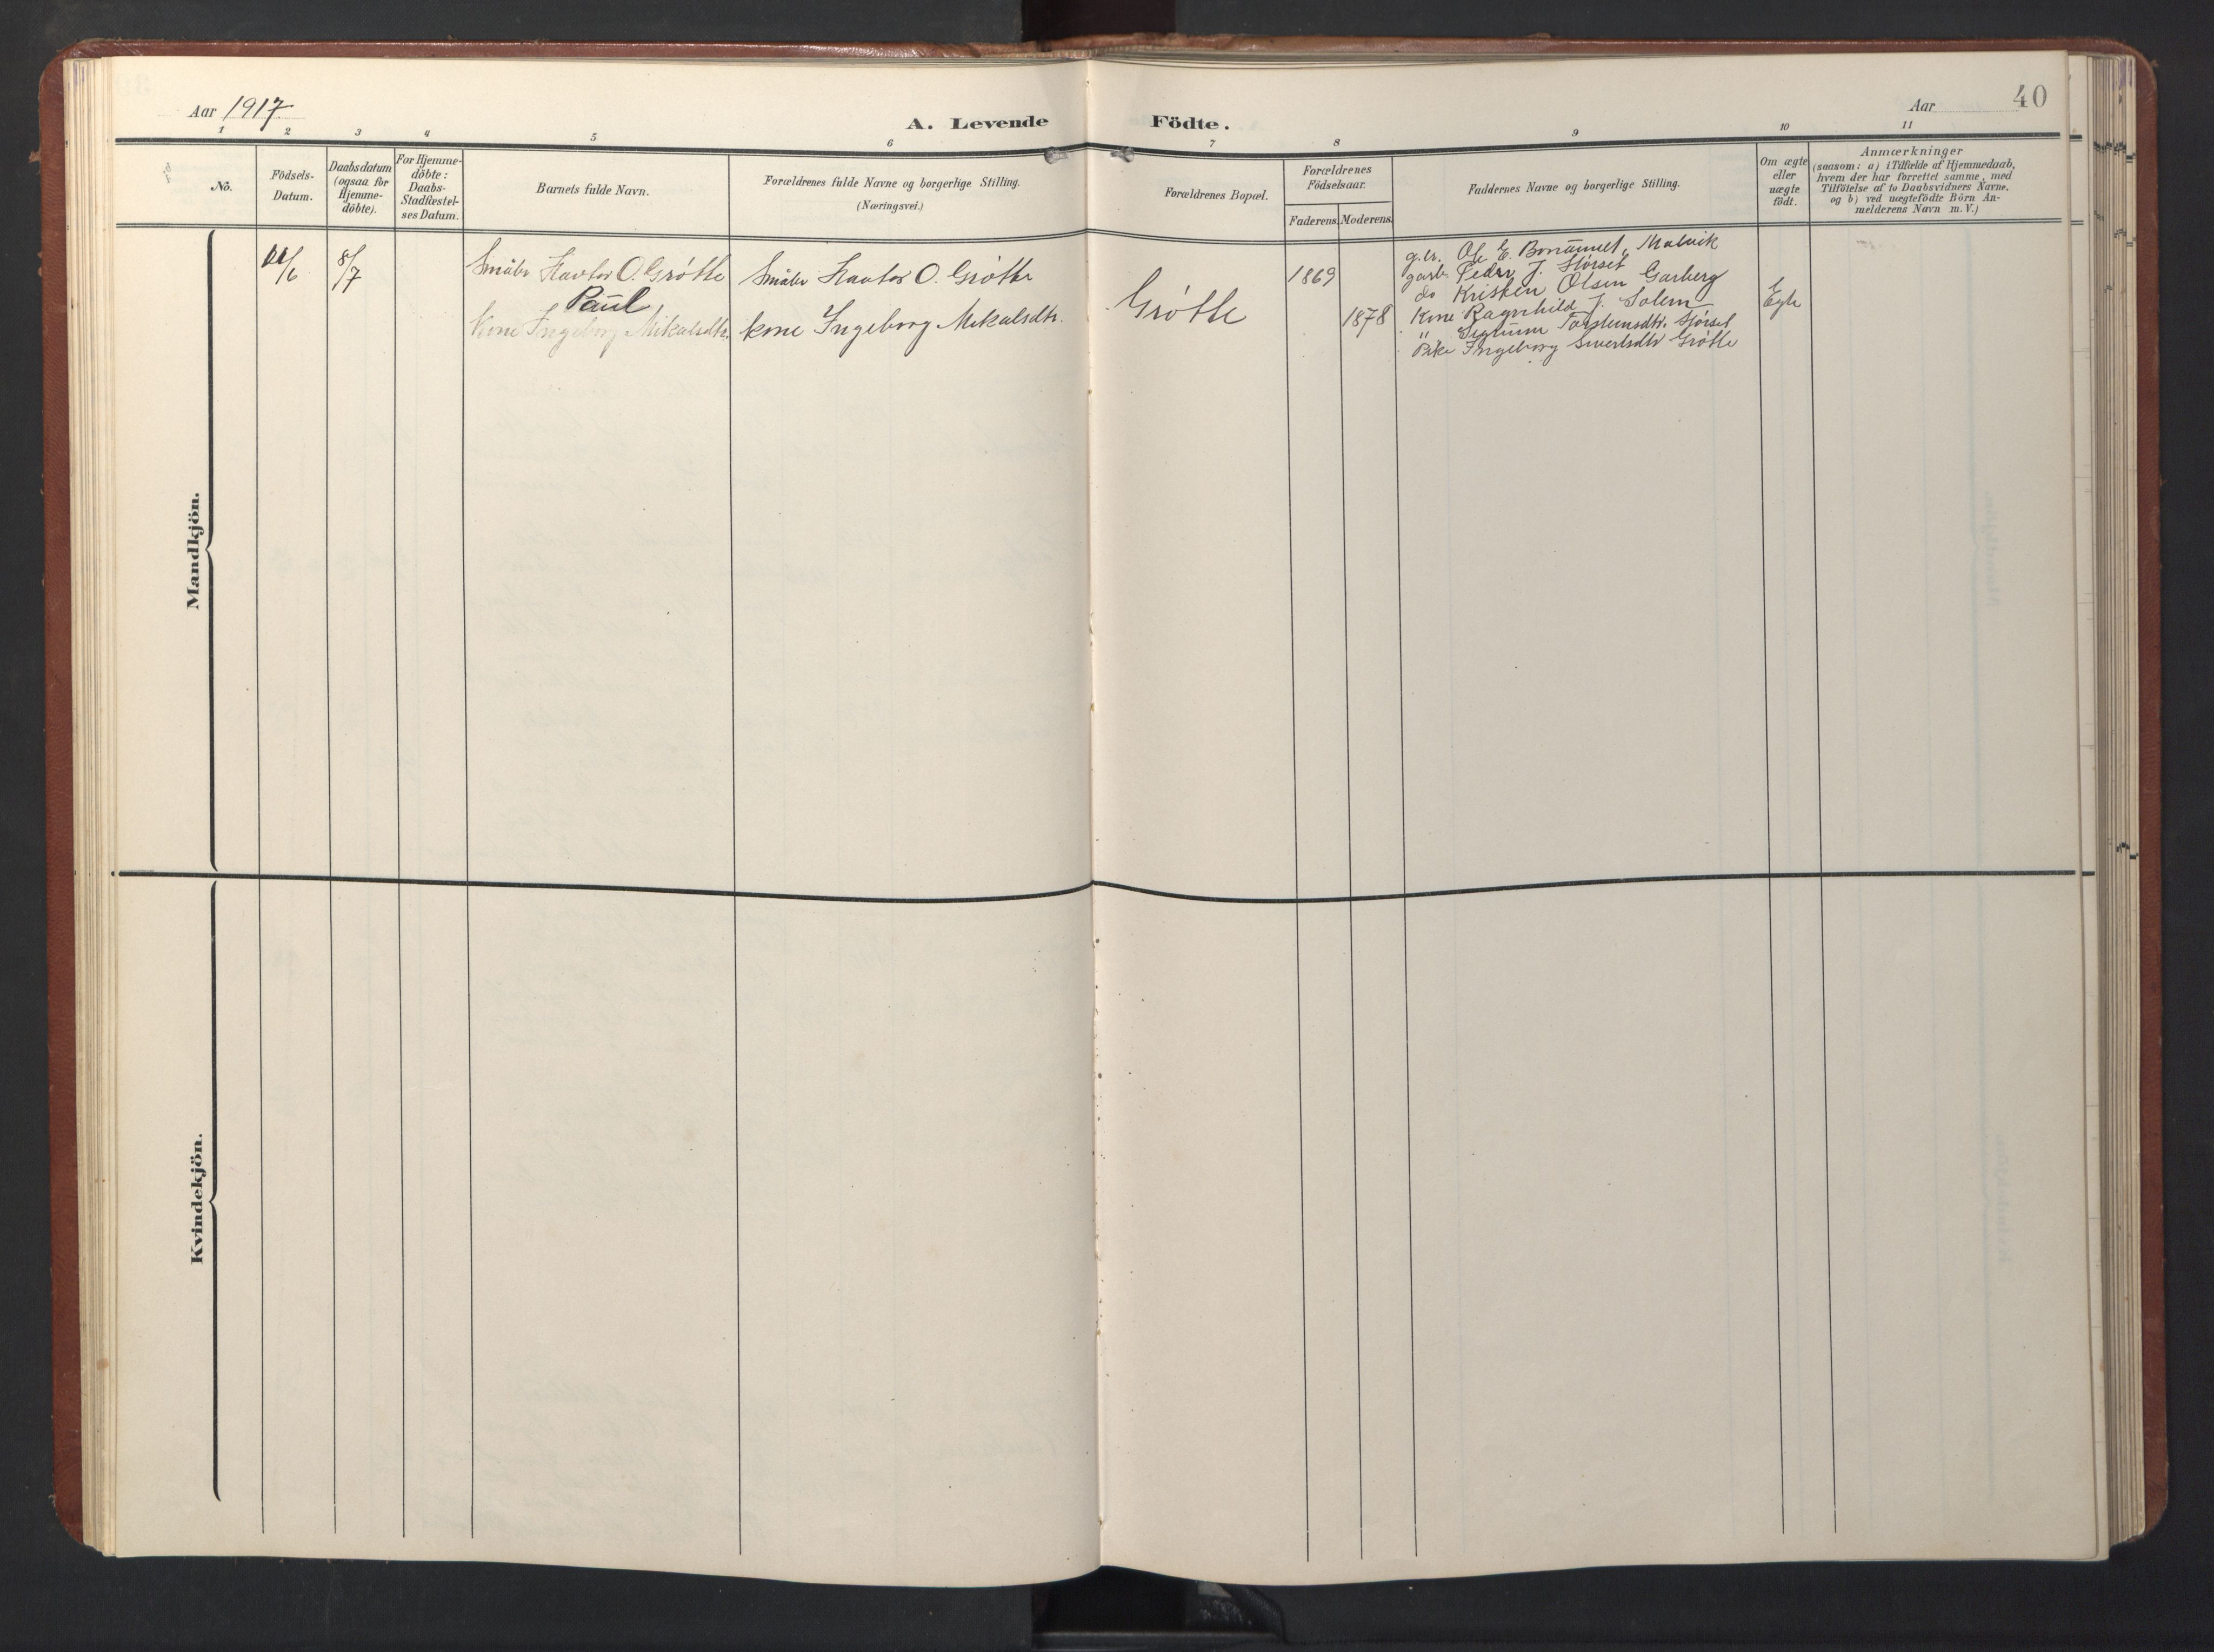 Aar 1917
A. Levende Födte.
Aar
40
1 2 3 4 5 6 7 8 9 10 11
No.
Födsels-
Datum.
Daabsdatum
(ogsaa for
Hjemme-
döbte).
For Hjemme-
döbte:
Daabs-
Stadfæstel-
ses Datum.
Barnets fulde Navn.
Forældrenes fulde Navne og borgerlige Stilling.
(Næringsvei.)
Forældrenes Bopæl.
Forældrenes
Födselsaar.
Faderens. Moderens.
Faddernes Navne og borgerlige Stilling.
Om ægte
eller
uægte
födt.
Anmærkninger
(saasom: a) i Tilfælde af Hjemmedaab,
hvem der har forrettet samme, med
Tilföielse af to Daabsvidners Navne.
og b) ved uægtefödte Börn An-
melderens Navn m. V.)
Mandkjön.
/6
8/7
Småbr Havtor O. Grøtte
Paul
Kone Ingeborg Mikalsdtr.
Småbr Havtor O. Grøtte
kone Ingeborg Mikalsdtr.
Grøtte
1869
1878
g.br. Ole E. Malvik
garb. Peder J. Størset
do Kristen Olsen Garberg
Kone Ragnhild J. Solem
" Torsteinsdtr. Størset
Pike Ingeborg Sivertsdtr Grøtte
Egte
Kvindekjön.